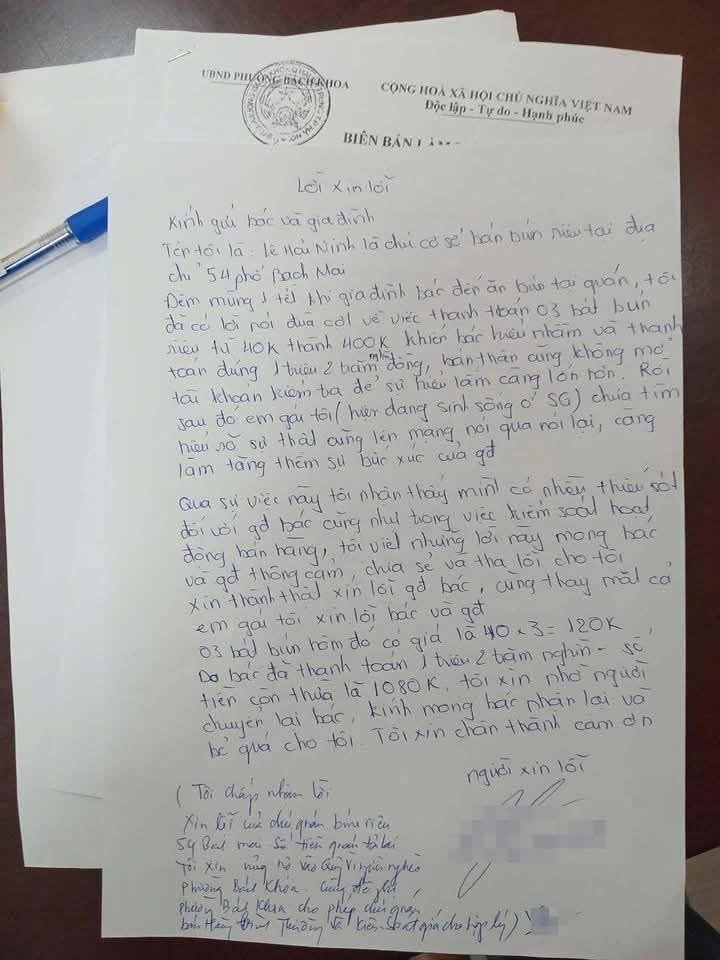 UBND PHƯỜNG BÁCH KHOA
CỘNG HOÀ XÃ HỘI CHỦ NGHĨA VIỆT NAM
Độc lập - Tự do - Hạnh phúc
BIÊN BẢN
Lời xin lỗi
Kính gửi bác và gia đình
Tên tôi là: Lê Hải Ninh là chủ cơ sở bán bún riêu tại địa
chỉ 54 phố Bạch Mai
Đêm mùng 1 tết khi gia đình bác đến ăn bún tại quán, tôi
đã có lời nói đùa cợt về việc thanh toán 03 bát bún
riêu từ 40K thành 400K khiến bác hiểu nhầm và thanh
toán đúng 1 triệu 2 trăm nghìn đồng, bản thân cũng không mở
tài khoản kiểm tra để sự hiểu lầm càng lớn hơn. Rồi
sau đó em gái tôi (hiện đang sinh sống ở SG) chưa tìm
hiểu rõ sự thật cũng lên mạng nói qua nói lại, càng
làm tăng thêm sự bức xúc của gđ
Qua sự việc này tôi nhận thấy mình có nhiều thiếu sót
đối với gđ bác cũng như trong việc kiểm soát hoạt
động bán hàng, tôi viết những lời này mong bác
và gđ thông cảm, chia sẻ và tha lỗi cho tôi
Xin thành thật xin lỗi gđ bác, cũng thay mặt cả
em gái tôi xin lỗi bác và gđ
03 bát bún hôm đó có giá là 40 x 3 = 120K
Do bác đã thanh toán 1 triệu 2 trăm nghìn - số
tiền còn thừa là 1080K. tôi xin nhờ người
chuyển lại bác, kính mong bác nhận lại và
bỏ quá cho tôi. Tôi xin chân thành cảm ơn
người xin lỗi
(Tôi chấp nhận lời
xin lỗi của chủ quán bún riêu
54 Bạch mai Số tiền quán trả lại
Tôi xin ủng hộ vào Quỹ Vì người nghèo
phường Bách Khoa. Cũng đề nghị
phường Bách Khoa cho phép chủ quán
bán hàng bình Thường và kiểm soát giá cho hợp lý)